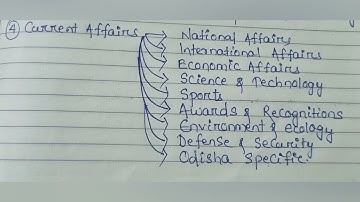 ④ Current Affairs → National Affairs
International Affairs
Economic Affairs
Science & Technology
Sports
Awards & Recognitions
Environment & ecology
Defense & Security
Odisha Specific.